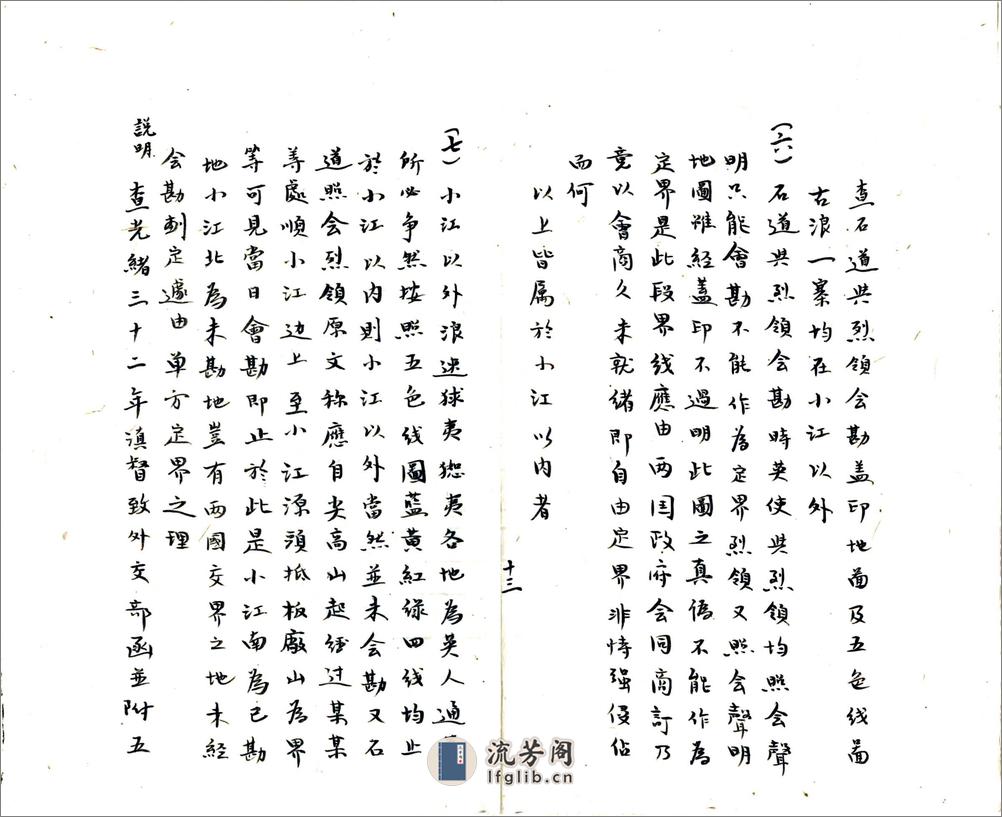 查石道與烈領会勘盖印地啚及五色线啚
古浪一寨均在小江以外
(六) 石道與烈領会勘時英使與烈領均照会聲
明只能會勘不能作為定界烈領又照会聲明
地圖雖經盖印不過明此圖之真偽不能作為
定界是此段界线應由两囯政府会同商訂乃
竟以會商久未就绪即自由定界非恃强侵佔
而何
以上皆属於小江以内者
十三
(七) 小江以外浪速狱夷狱夷各地為英人通
所必争然按照五色线圖藍黄紅绿四线均止
於小江以内則小江以外當然並未会勘又石
道照会烈領原文称應自尖高山起经过某某
等處順小江边上至小江源頭抵板廠山為界
等可見當日會勘即止於此是小江南為已勘
地小江北為未勘地豈有两國交界之地未經
会勘制定遽由单方定界之理
説明 查光緒三十二年滇督致外交部函並附五
流芳阁
lfglib.cn